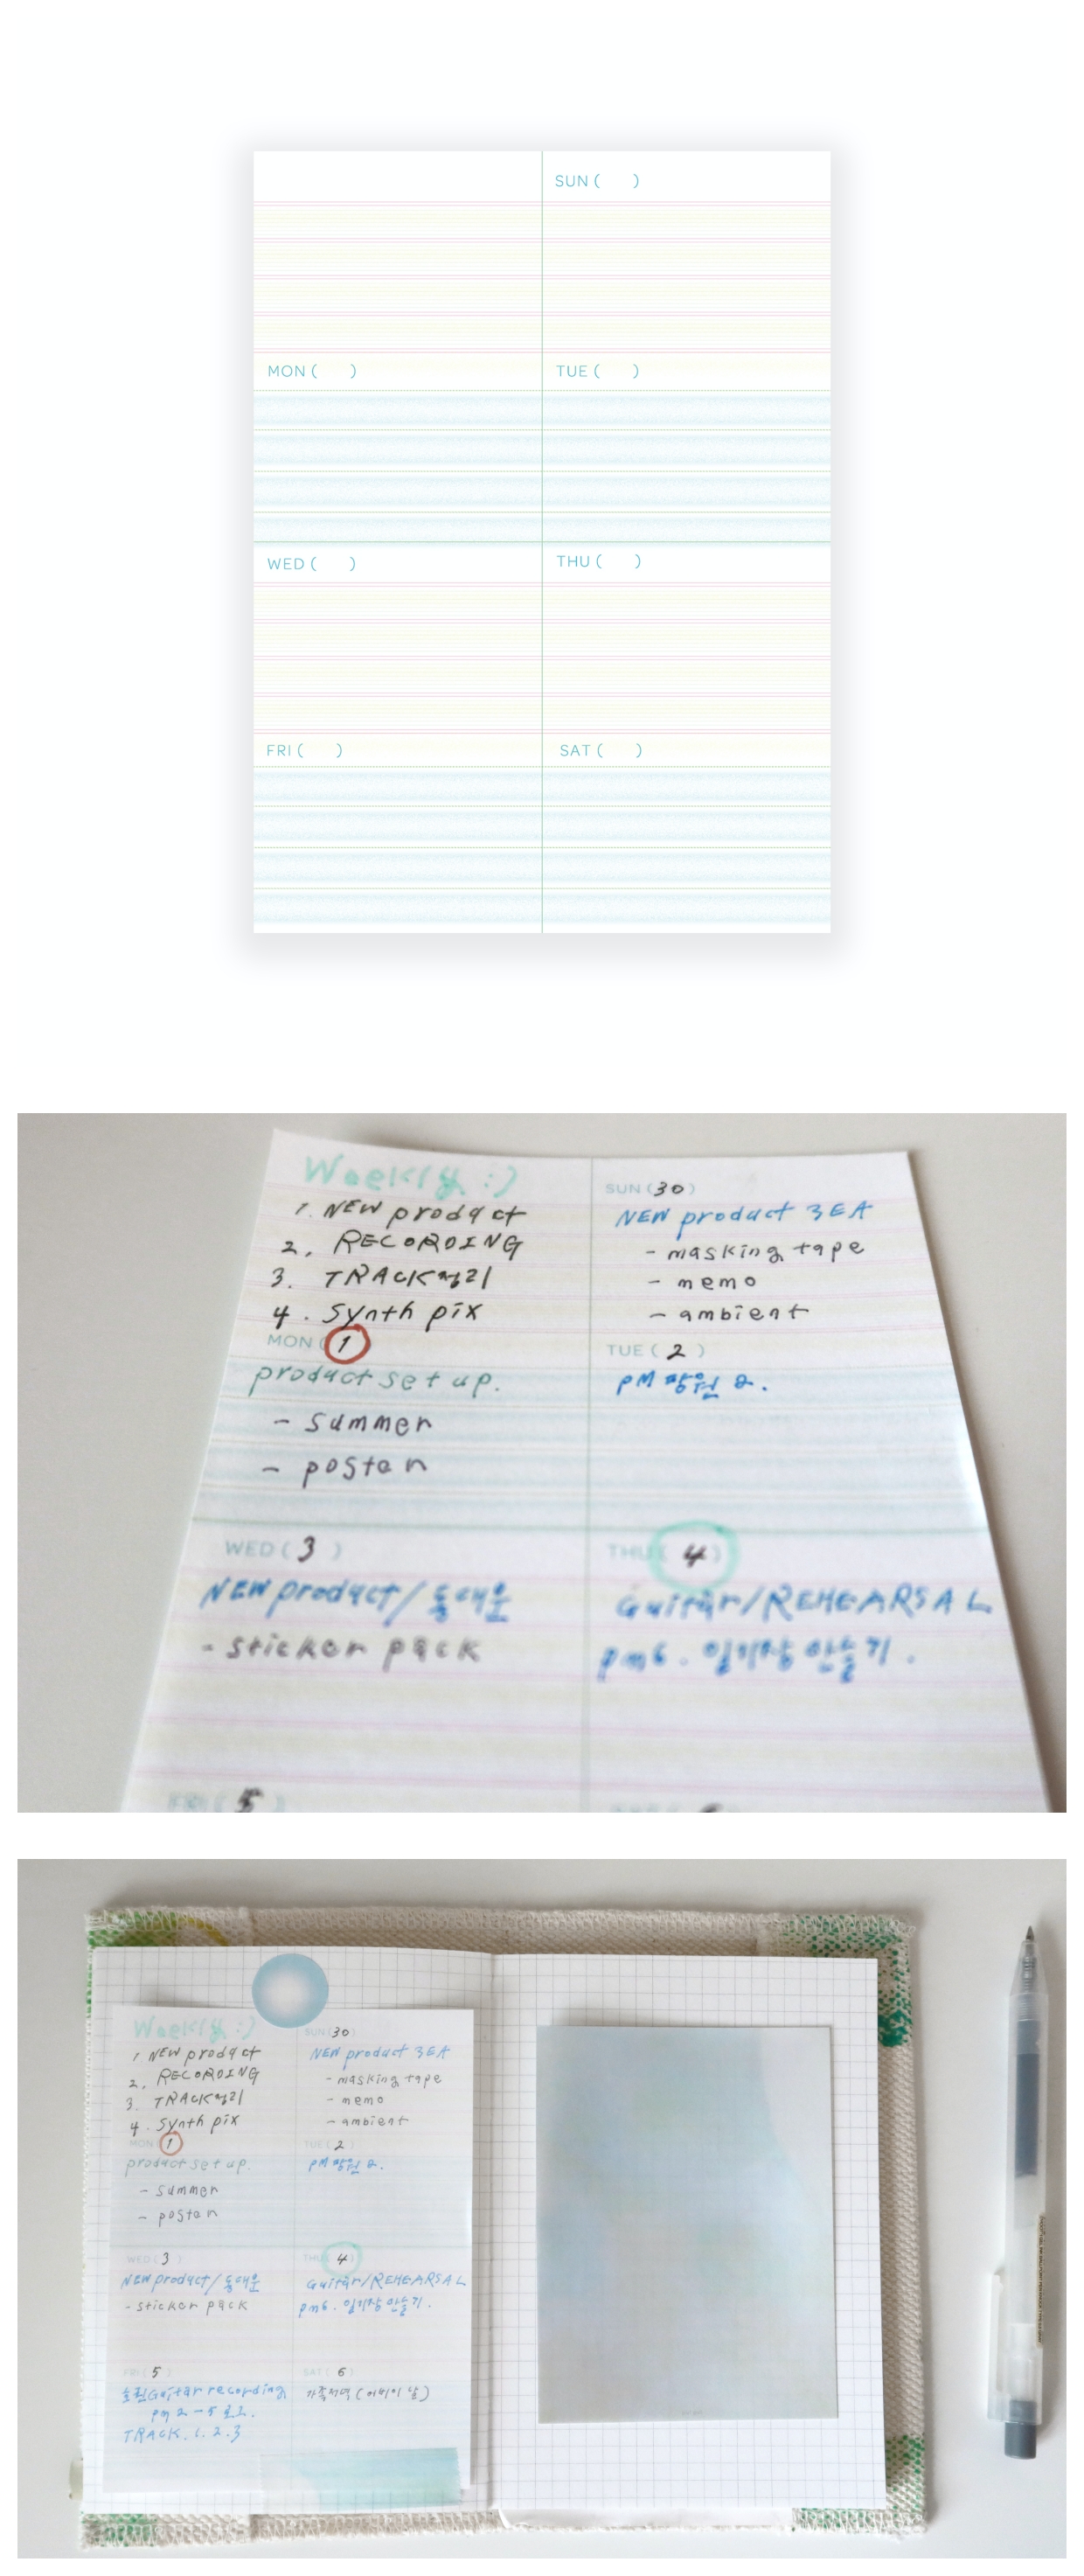 SUN ( )
MON ( )
TUE ( )
WED ( )
THU ( )
FRI ( )
SAT ( )
Weekly :)
1. NEW product
2. RECORDING
3. TRACK
4. Synth pix
SUN (30)
NEW product 3EA
- masking tape
- memo
- ambient
MON (1)
product set up.
- summer
- poster
TUE (2)
PM 2.
WED (3)
NEW product/
- sticker pack
THU (4)
Guitar/REHEARSAL
pm6. 일기장 만들기.
FRI (5)
Weekly :)
1 NEW product
2. RECORDING
3. TRACK
4. Synth pix
SUN (30)
NEW product 3EA
- masking tape
- memo
- ambient
MON (1)
product set up.
- summer
- poster
TUE (2)
PM 2.
WED (3)
NEW product/
- sticker pack
THU (4)
Guitar/REHEARSAL
pm6. 일기장 만들기.
FRI (5)
Guitar recording
pm 2 - 5
TRACK. 1. 2. 3
SAT (6)
가족저녁 (어버이날)